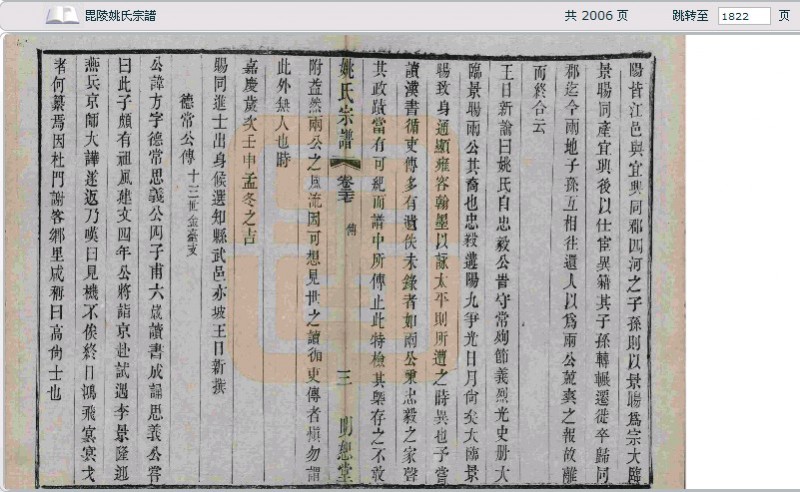 毘陵姚氏宗譜
共 2006 页
跳转至 1822 页
陽皆江邑與宜興同郡四河之子孫則以景賜爲宗大臨
景賜同產宜興後以仕宦異籍其子孫轉輾遷徙卒歸同
郡迄今兩地子孫互相往還人以爲兩公 之報故離
而終合云
王日新論曰姚氏自忠毅公昔守常殉節義烈光史册大
臨景賜兩公其裔也忠毅遭陽九爭光日月尙矣大臨景
賜致身通顯雍容翰墨以詠太平則所遭之時異也予嘗
讀漢書循吏傳多有遺佚未錄者如兩公秉忠毅之家聲
其政蹟當有可紀而譜中所傳止此特檢其槩存之不敢
姚氏宗譜
卷
傳
三
附益然兩公之風流因可想見世之讀循吏傳者愼勿謂
此外無人也時
嘉慶歲次壬申孟冬之吉
賜同進士出身候選知縣武邑亦坡王日新撰
德常公傳 十三世金臺支
公諱方字德常思義公四子甫六歲讀書成誦思義公嘗
曰此子頗有祖風建文四年公將詣京赴試遇李景隆迎
燕兵京師大譁遂返乃嘆曰見機不俟終日鴻飛冥冥弋
者何纂焉因杜門謝客鄉里咸稱曰高尙士也